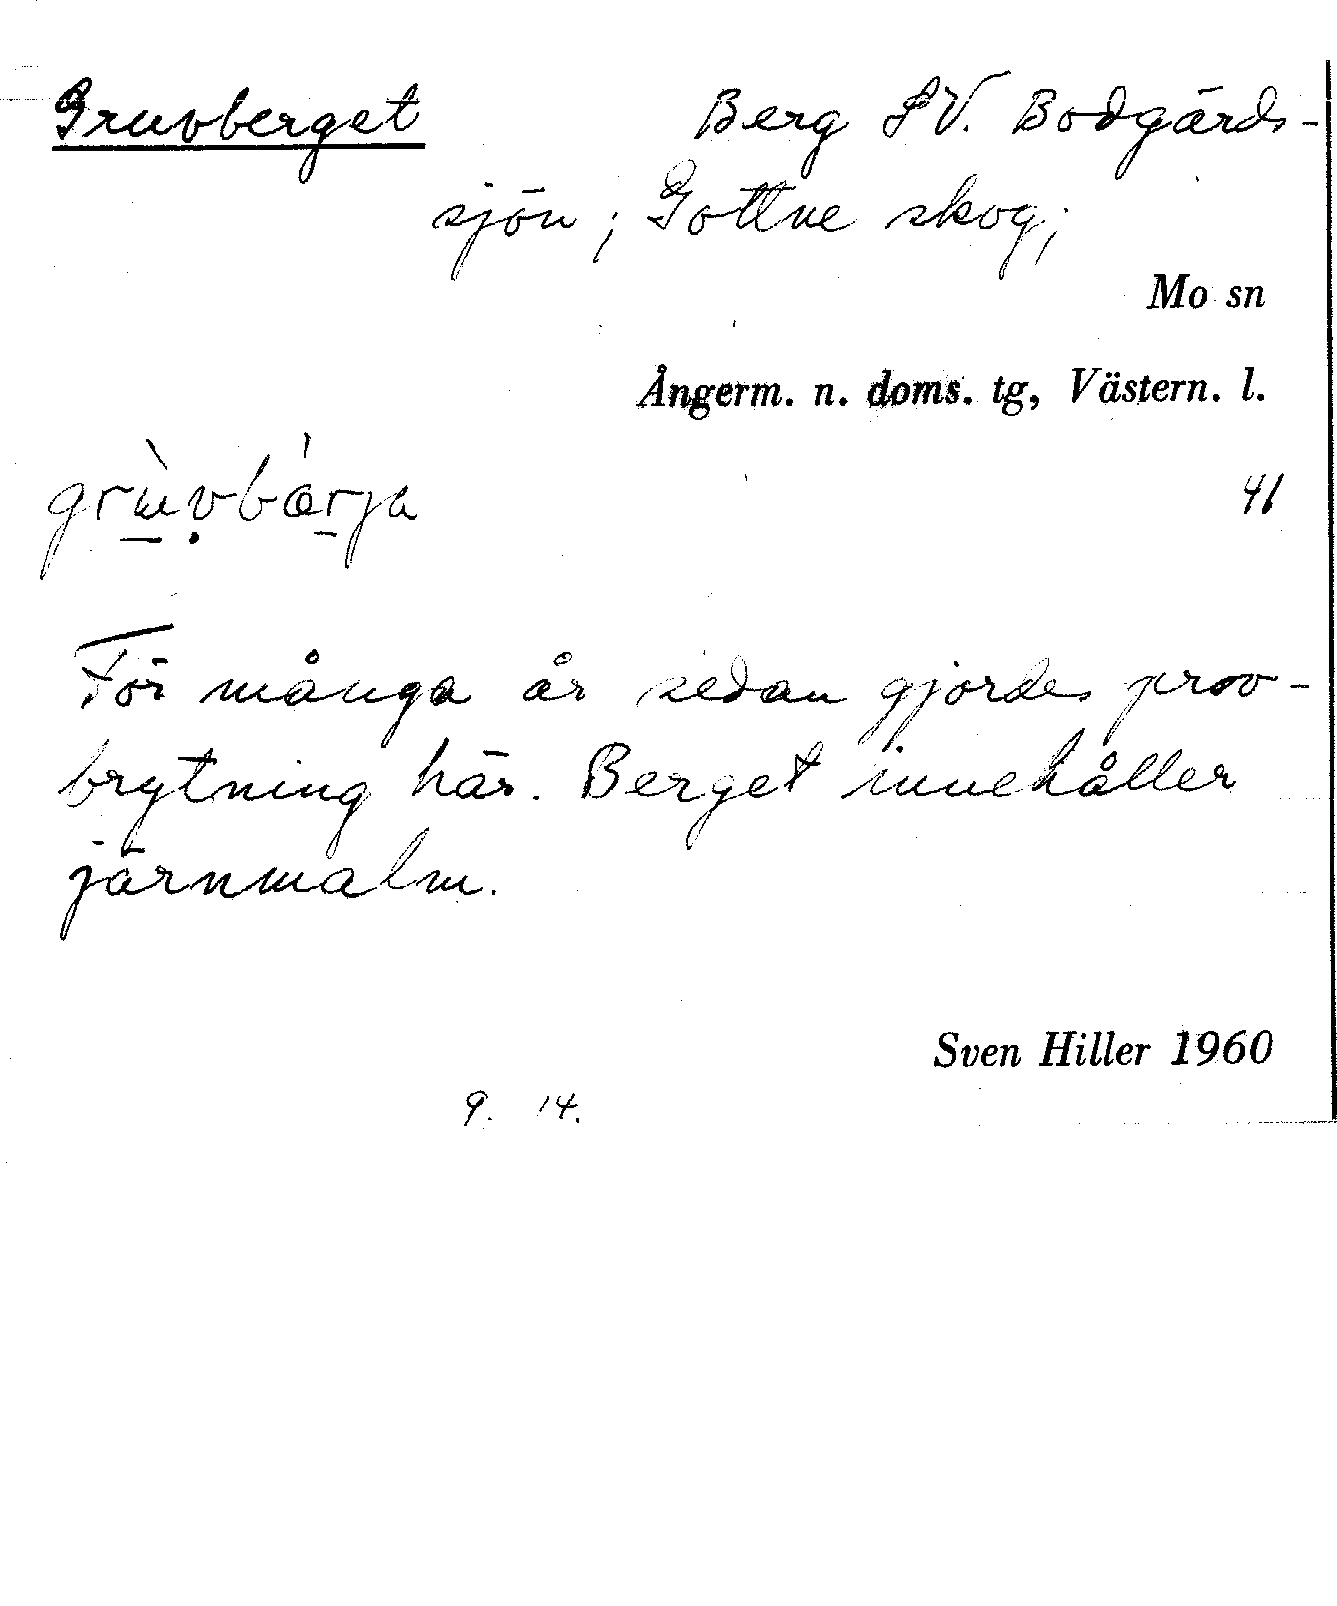 Gruvberget Berg SV. Bodgärds-
sjön; Gottne skog;
Mo sn
Ångerm. n. doms. tg, Västern. l.
41
För många år sedan gjordes prov-
brytning här. Berget innehåller
järnmalm.
Sven Hiller 1960
9. 14.